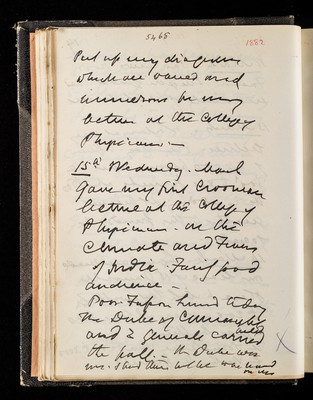 5465
1882
Put up my diagrams
which are varied and
numerous for my
lecture at the College of
Physicians —
15th Wednesday. March
Gave my first Croonian
lecture at the College of
Physicians. on the
Climate and Fevers
of India. Fairly good
audience —
Poor Fapon buried today
The Duke of Connaught
and 2 generals carried
the pall. — the Duke was